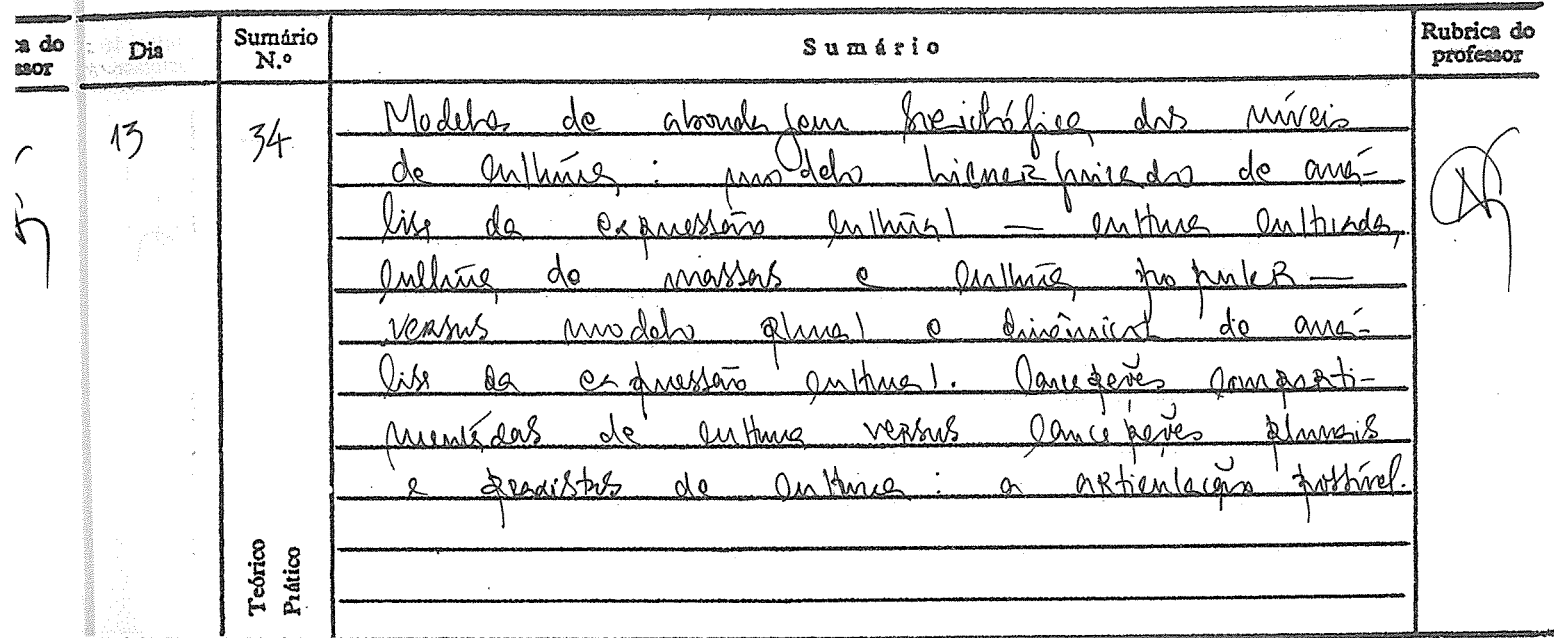 a do
ssor
Dia
Sumário
N.º
Sumário
Rubrica do
professor
13
34
Modelos de abordagem sociológica dos níveis
de cultura: modelo hierarquizado de aná-
lise da expressão cultural — cultura cultivada,
cultura de massas e cultura popular —
versus modelo plural e dinâmico de aná-
lise da expressão cultural. Concepções comparti-
mentadas de cultura versus concepções plurais
e de cultura: a articulação possível.
Teórico
Prático